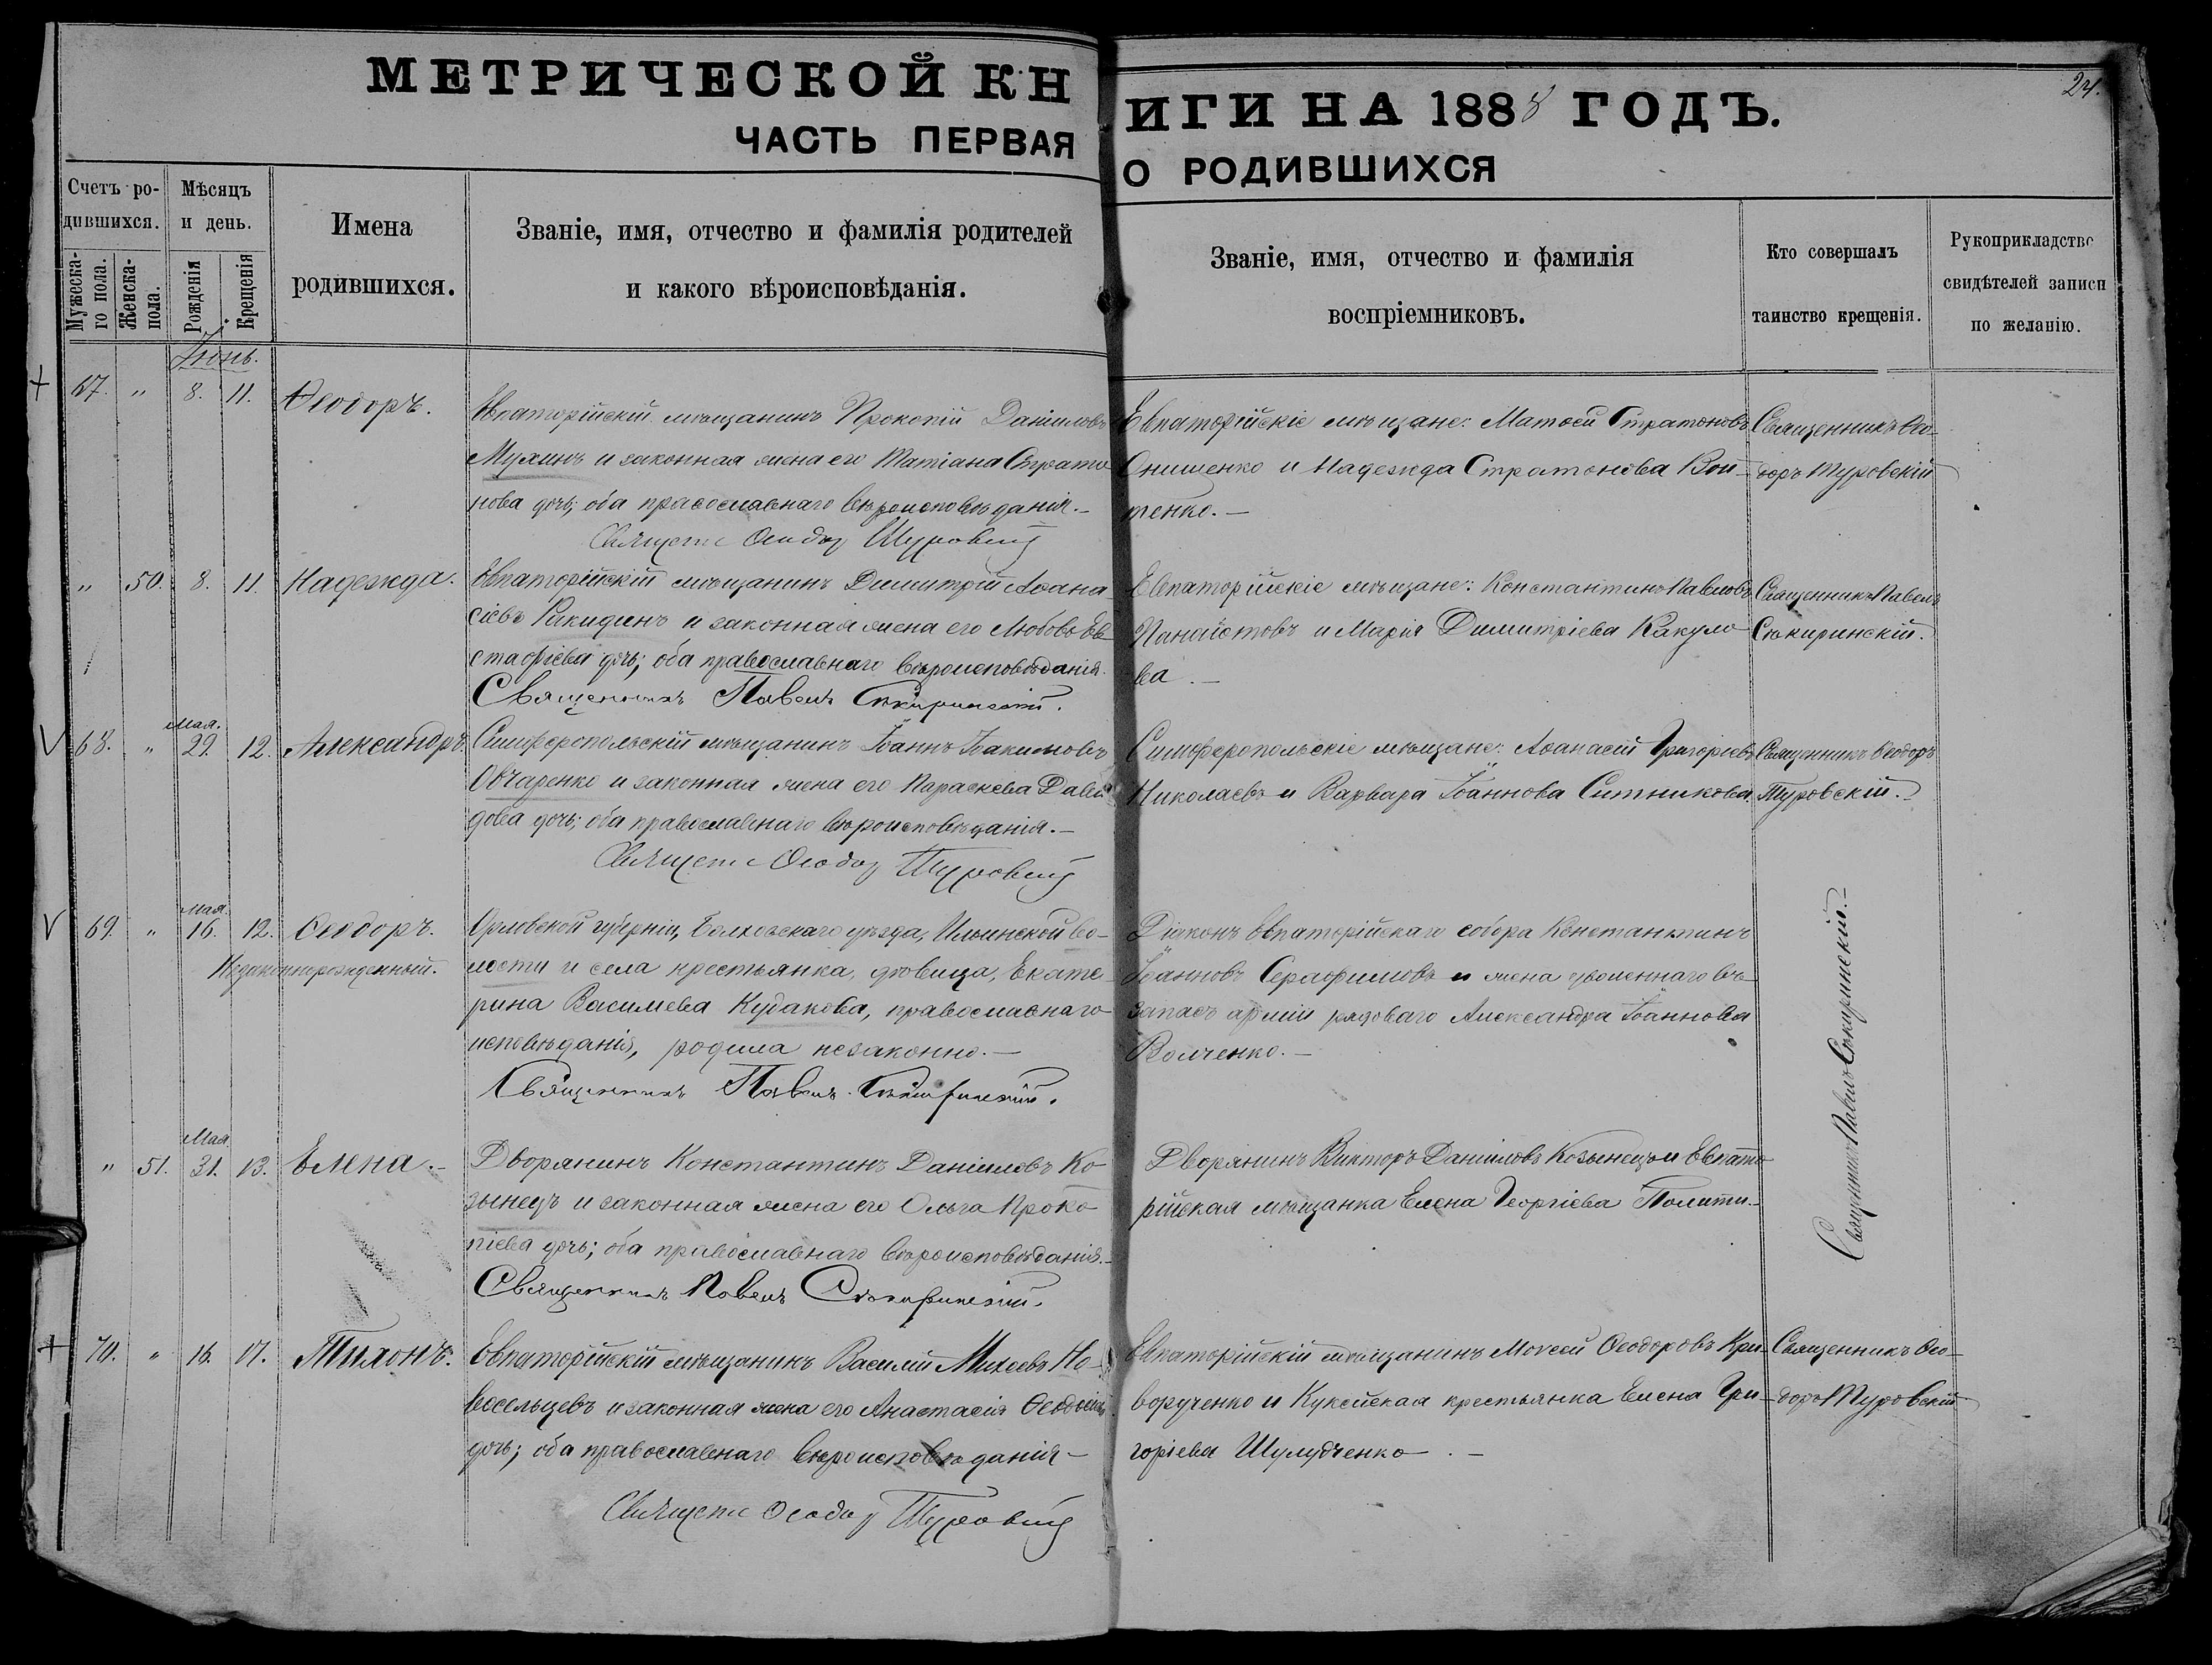 МЕТРИЧЕСКОЙ КНИГИ НА 1888 ГОДЪ.
24.
ЧАСТЬ ПЕРВАЯ О РОДИВШИХСЯ
Счетъ ро-
дившихся.
Мужеска-
го пола.
Женска-
пола.
Мѣсяцъ
и день.
Рожденія
Крещенія
Имена
родившихся.
Званіе, имя, отчество и фамилія родителей
и какого вѣроисповѣданія.
Званіе, имя, отчество и фамилія
воспріемниковъ.
Кто совершалъ
таинство крещенія.
Рукоприкладство
свидѣтелей записи
по желанію.
Іюнь.
67. " 8. 11. Ѳеодоръ.
Евпаторійскій мѣщанинъ Прокопій Даніиловъ
Мухинъ и законная жена его Татіана Страто
нова дочь; оба православнаго вѣроисповѣданія.-
Священ Ѳеодор Туровскій
Евпаторійскіе мѣщане: Матѳей Стратоновъ
Онищенко и Надежда Стратонова Вои-
тенко.-
Священникъ Ѳео-
доръ Туровскій
" 50. 8. 11. Надежда.
Евпаторійскій мѣщанинъ Димитрій Аѳана
сіевъ Ракидинъ и законная жена его Любовь Ев
стафіева дочь; оба православнаго вѣроисповѣданія.
Священникъ Павелъ Сокиринскій.
Евпаторійскіе мѣщане: Константинъ Павловъ
Панаіотовъ и Марія Димитріева Какуло
ва.-
Священникъ Павелъ
Сокиринскій.
Мая.
68. " 29. 12. Александръ.
Симферопольскій мѣщанинъ Іоаннъ Іоакимовъ
Овчаренко и законная жена его Параскева Давы
дова дочь; оба православнаго вѣроисповѣданія.-
Священ Ѳеодор Туровскій
Симферопольскіе мѣщане: Аѳанасій Григоріевъ
Николаевъ и Варвара Іоаннова Ситникова.
Священникъ Ѳеодоръ
Туровскій.-
Мая.
69. " 16. 12. Ѳеодоръ.
Незаконнорожденный.
Орловской губерніи, Болховскаго уѣзда, Ильинской во-
лости и села крестьянка, дѣвица, Екате
рина Василіева Кудакова, православнаго
исповѣданія, родила незаконно.-
Священникъ Павелъ Сокиринскій.
Діаконъ Евпаторійскаго собора Константинъ
Іоанновъ Серафимовъ и жена уволеннаго въ
запасъ арміи рядоваго Александра Іоаннова
Волченко.-
Священникъ Павелъ Сокиринскій.-
Мая.
" 51. 31. 13. Елена.-
Дворянинъ Константинъ Даніиловъ Ко
зынецъ и законная жена его Ольга Проко
піева дочь; оба православнаго вѣроисповѣданія.-
Священникъ Павелъ Сокиринскій.
Дворянинъ Викторъ Даніиловъ Козынецъ и Евпато
рійская мѣщанка Елена Георгіева Полити.-
70. " 16. 17. Тихонъ.
Евпаторійскій мѣщанинъ Василій Михеевъ Но-
восельцевъ и законная жена его Анастасія
дочь; оба православнаго вѣроисповѣданія-
Священ Ѳеодор Туровскій
Евпаторійскій мѣщанинъ Моѵсей Ѳеодоровъ Кри-
ворученко и Кукейская крестьянка Елена Гри-
горіева Шулудченко.-
Священникъ Ѳео-
доръ Туровскій